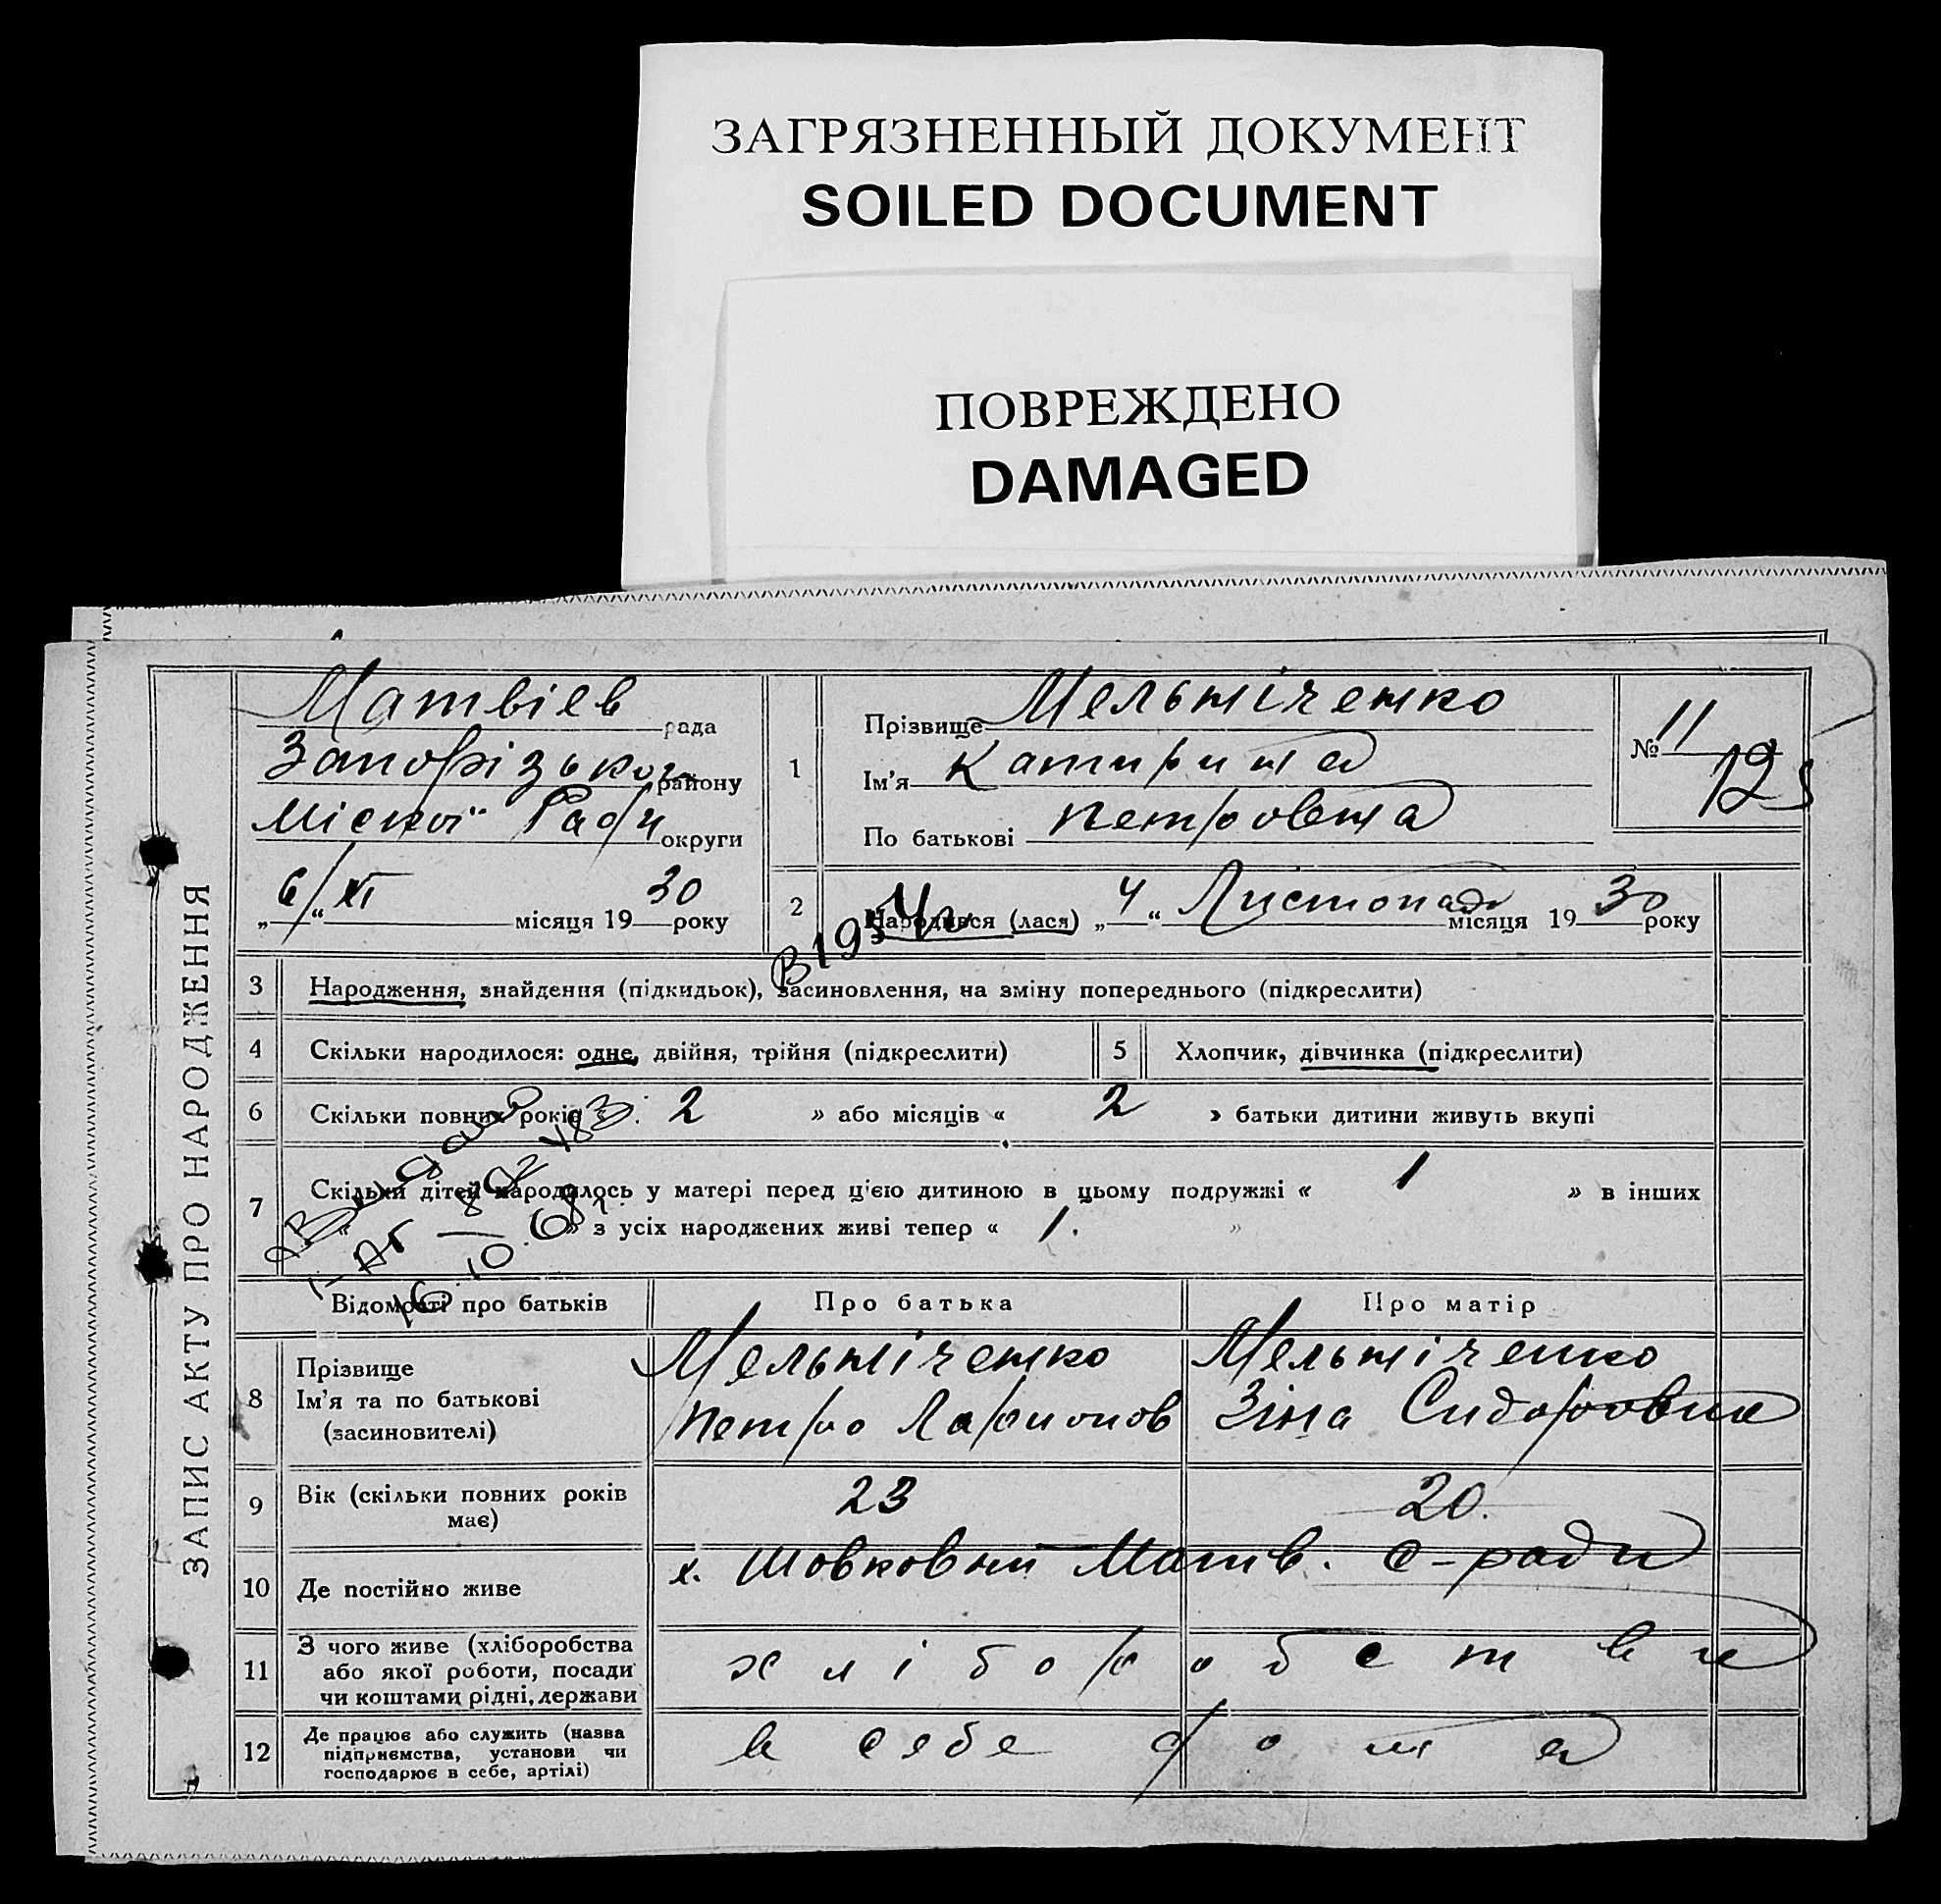 ЗАГРЯЗНЕННЫЙ ДОКУМЕНТ
SOILED DOCUMENT
ПОВРЕЖДЕНО
DAMAGED
ЗАПИС АКТУ ПРО НАРОДЖЕННЯ
Матвіев рада
Запорізького району
Міської Ради округи
„6“ XI місяця 1930 року
1
Прізвище Мельніченко
Ім'я Катирина
По батькові Петровна
№ 11
125
2
Народився (лася) „4“ Листопада місяця 1930 року
3 Народження, знайдення (підкидьок), засиновлення, на зміну попереднього (підкреслити)
4 Скільки народилося: одне, двійня, трійня (підкреслити)
5 Хлопчик, дівчинка (підкреслити)
6 Скільки повних років 2 » або місяців « 2 » батьки дитини живуть вкупі
7 Скільки дітей народилось у матері перед ц'єю дитиною в цьому подружжі « 1 » в інших
« » з усіх народжених живі тепер « 1. »
Відомості про батьків
Про батька
Про матір
8 Прізвище
Ім'я та по батькові
(засиновителі)
Мельніченко
Петро Ларионов
Мельніченко
Зіна Сидоровна
9 Вік (скільки повних років
має)
23
20.
10 Де постійно живе
х. Шовковий Матв. С-ради
11 З чого живе (хліборобства
або якої роботи, посади
чи коштами рідні, держави
хліборобства
12 Де працює або служить (назва
підприємства, установи чи
господарює в себе, артілі)
в себе дома